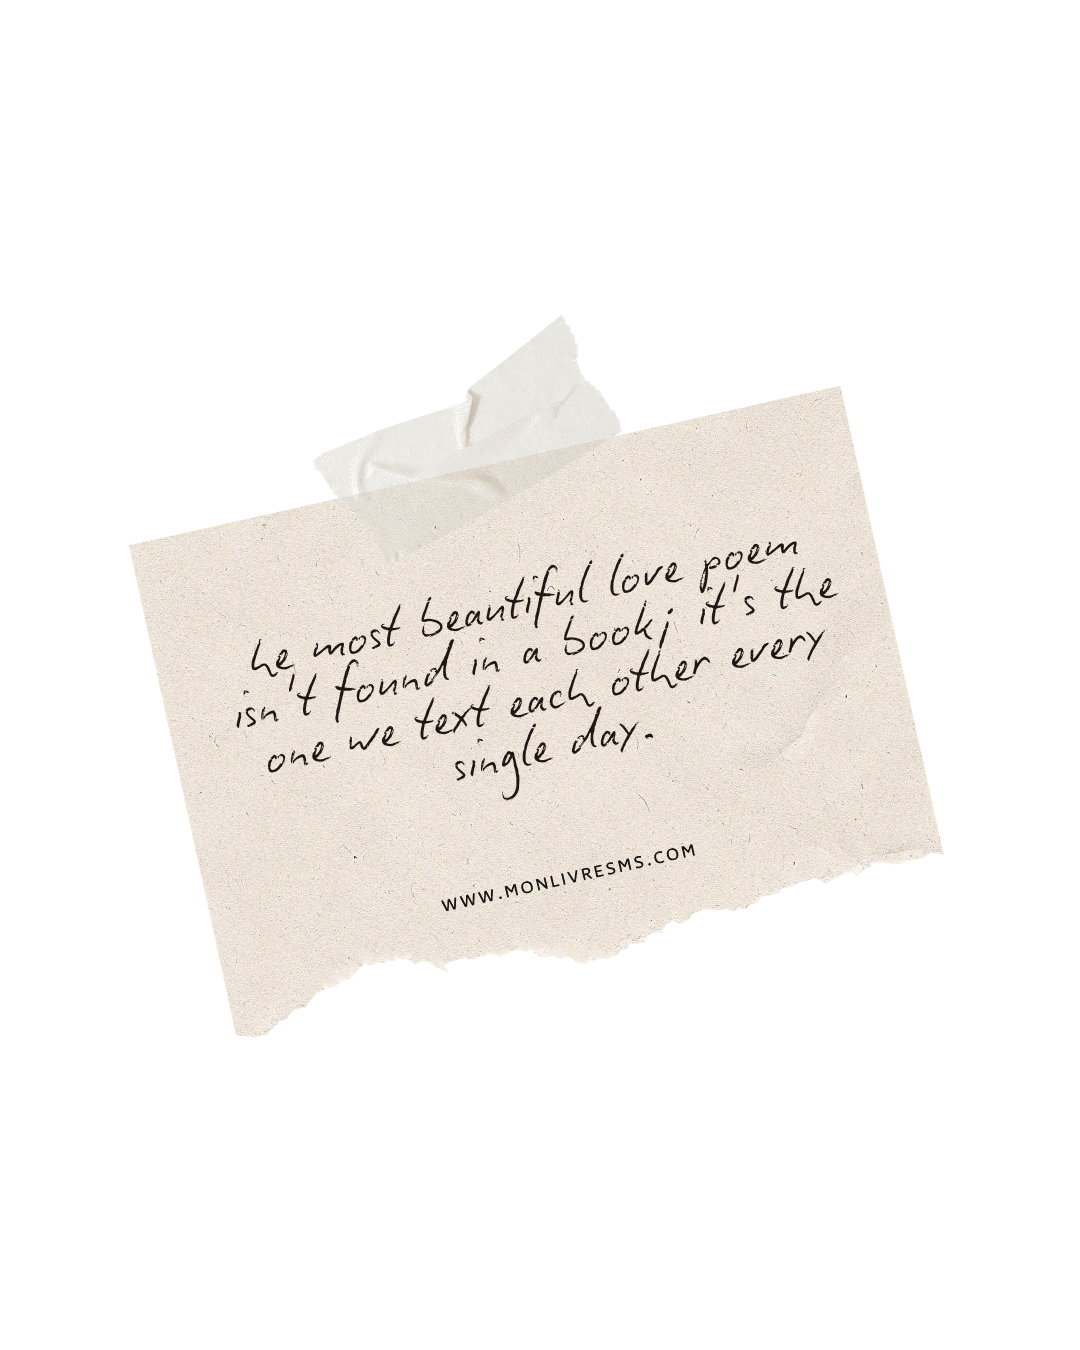 he most beautiful love poem
isn't found in a book; it's the
one we text each other every
single day.
WWW.MONLIVRESMS.COM